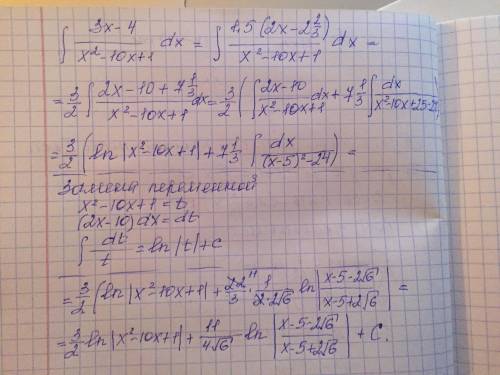 ∫ (3x-4)/(x²-10x+1) dx = ∫ 1,5(2x-2 2/3)/(x²-10x+1) dx =
= 3/2 ∫ (2x-10+7 1/3)/(x²-10x+1) dx = 3/2 (∫ (2x-10)/(x²-10x+1) dx + 7 1/3 ∫ dx/(x²-10x+25-24)
= 3/2 (ln |x²-10x+1| + 7 1/3 ∫ dx/((x-5)²-24)) =
Замена переменной
x²-10x+1 = t
(2x-10)dx = dt
∫ dt/t = ln|t|+c
= 3/2 (ln |x²-10x+1| + 22/3 · 1/(2·2√6) ln |(x-5-2√6)/(x-5+2√6)| =
= 3/2 ln |x²-10x+1| + 11/(4√6) ln |(x-5-2√6)/(x-5+2√6)| + C.